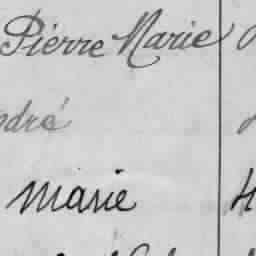 Pierre Marie
dré
Marie